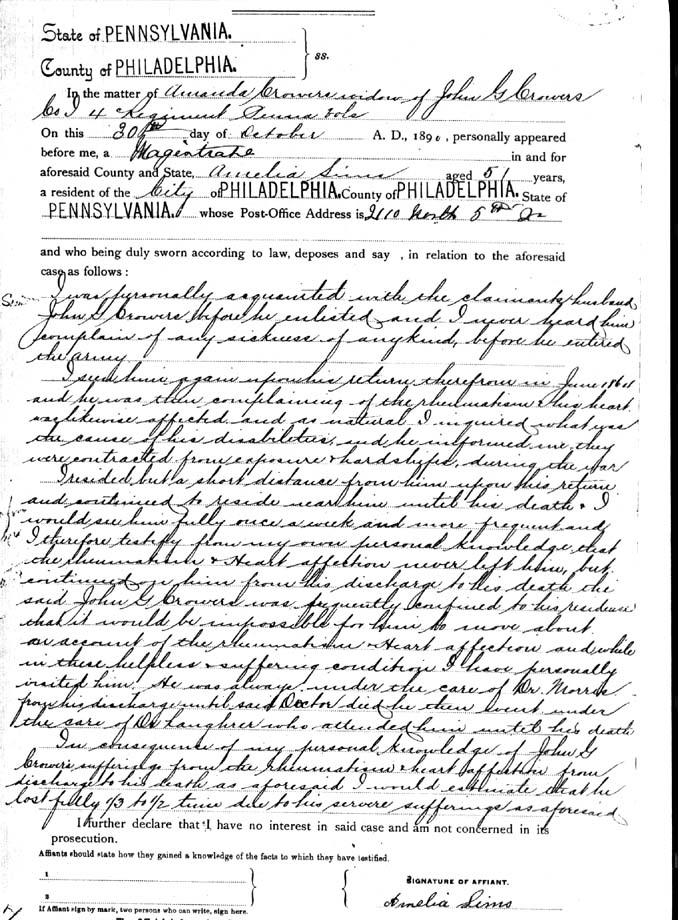 State of PENNSYLVANIA.
County of PHILADELPHIA. } ss.
In the matter of Amanda Crowers widow of John G Crowers
Co I 4 Regiment Penna Vols
On this 30th day of October A. D., 1890, personally appeared
before me, a Magistrate in and for
aforesaid County and State, Amelia Sims aged 51 years,
a resident of the City of PHILADELPHIA. County of PHILADELPHIA. State of
PENNSYLVANIA. whose Post-Office Address is 2110 North 5th
and who being duly sworn according to law, deposes and say , in relation to the aforesaid
case as follows :
I was personally acquainted with the claimants husband
John G Crowers before he enlisted and I never heard him
complain of any sickness of anykind, before he entered
the army
I seen him again upon his return therefrom in June
and he was then complaining of the rheumatism & his heart
was likewise affected and as natural I inquired what was
the cause of his disabilities, and he informed me they
were contracted from exposure & hardships, during the war
I resided but a short distance from him upon his return
and continued to reside near him until his death & I
would see him fully once a week and more frequent and
I therefore testify from my own personal knowledge that
the rheumatism & Heart affection never left him, but
continued on him from his discharge to his death the
said John G Crowers was frequently confined to his residence
that it would be impossible for him to move about
on account of the rheumatism & Heart affection and while
in these helpless & suffering condition I have personally
visited him. He was always under the care of Dr. Morris
from his discharge until said Doctor died he then went under
the care of Dr who attended him until his death
In consequence of my personal knowledge of John G
Crowers sufferings from the rheumatism & heart affection from
discharge to his death as aforesaid I would estimate that he
lost fully 1/3 to 1/2 time due to his servere sufferings as aforesaid
I further declare that I have no interest in said case and am not concerned in its
prosecution.
Affiants should state how they gained a knowledge of the facts to which they have testified.
1
2
If Affiant sign by mark, two persons who can write, sign here.
SIGNATURE OF AFFIANT.
Amelia Sims